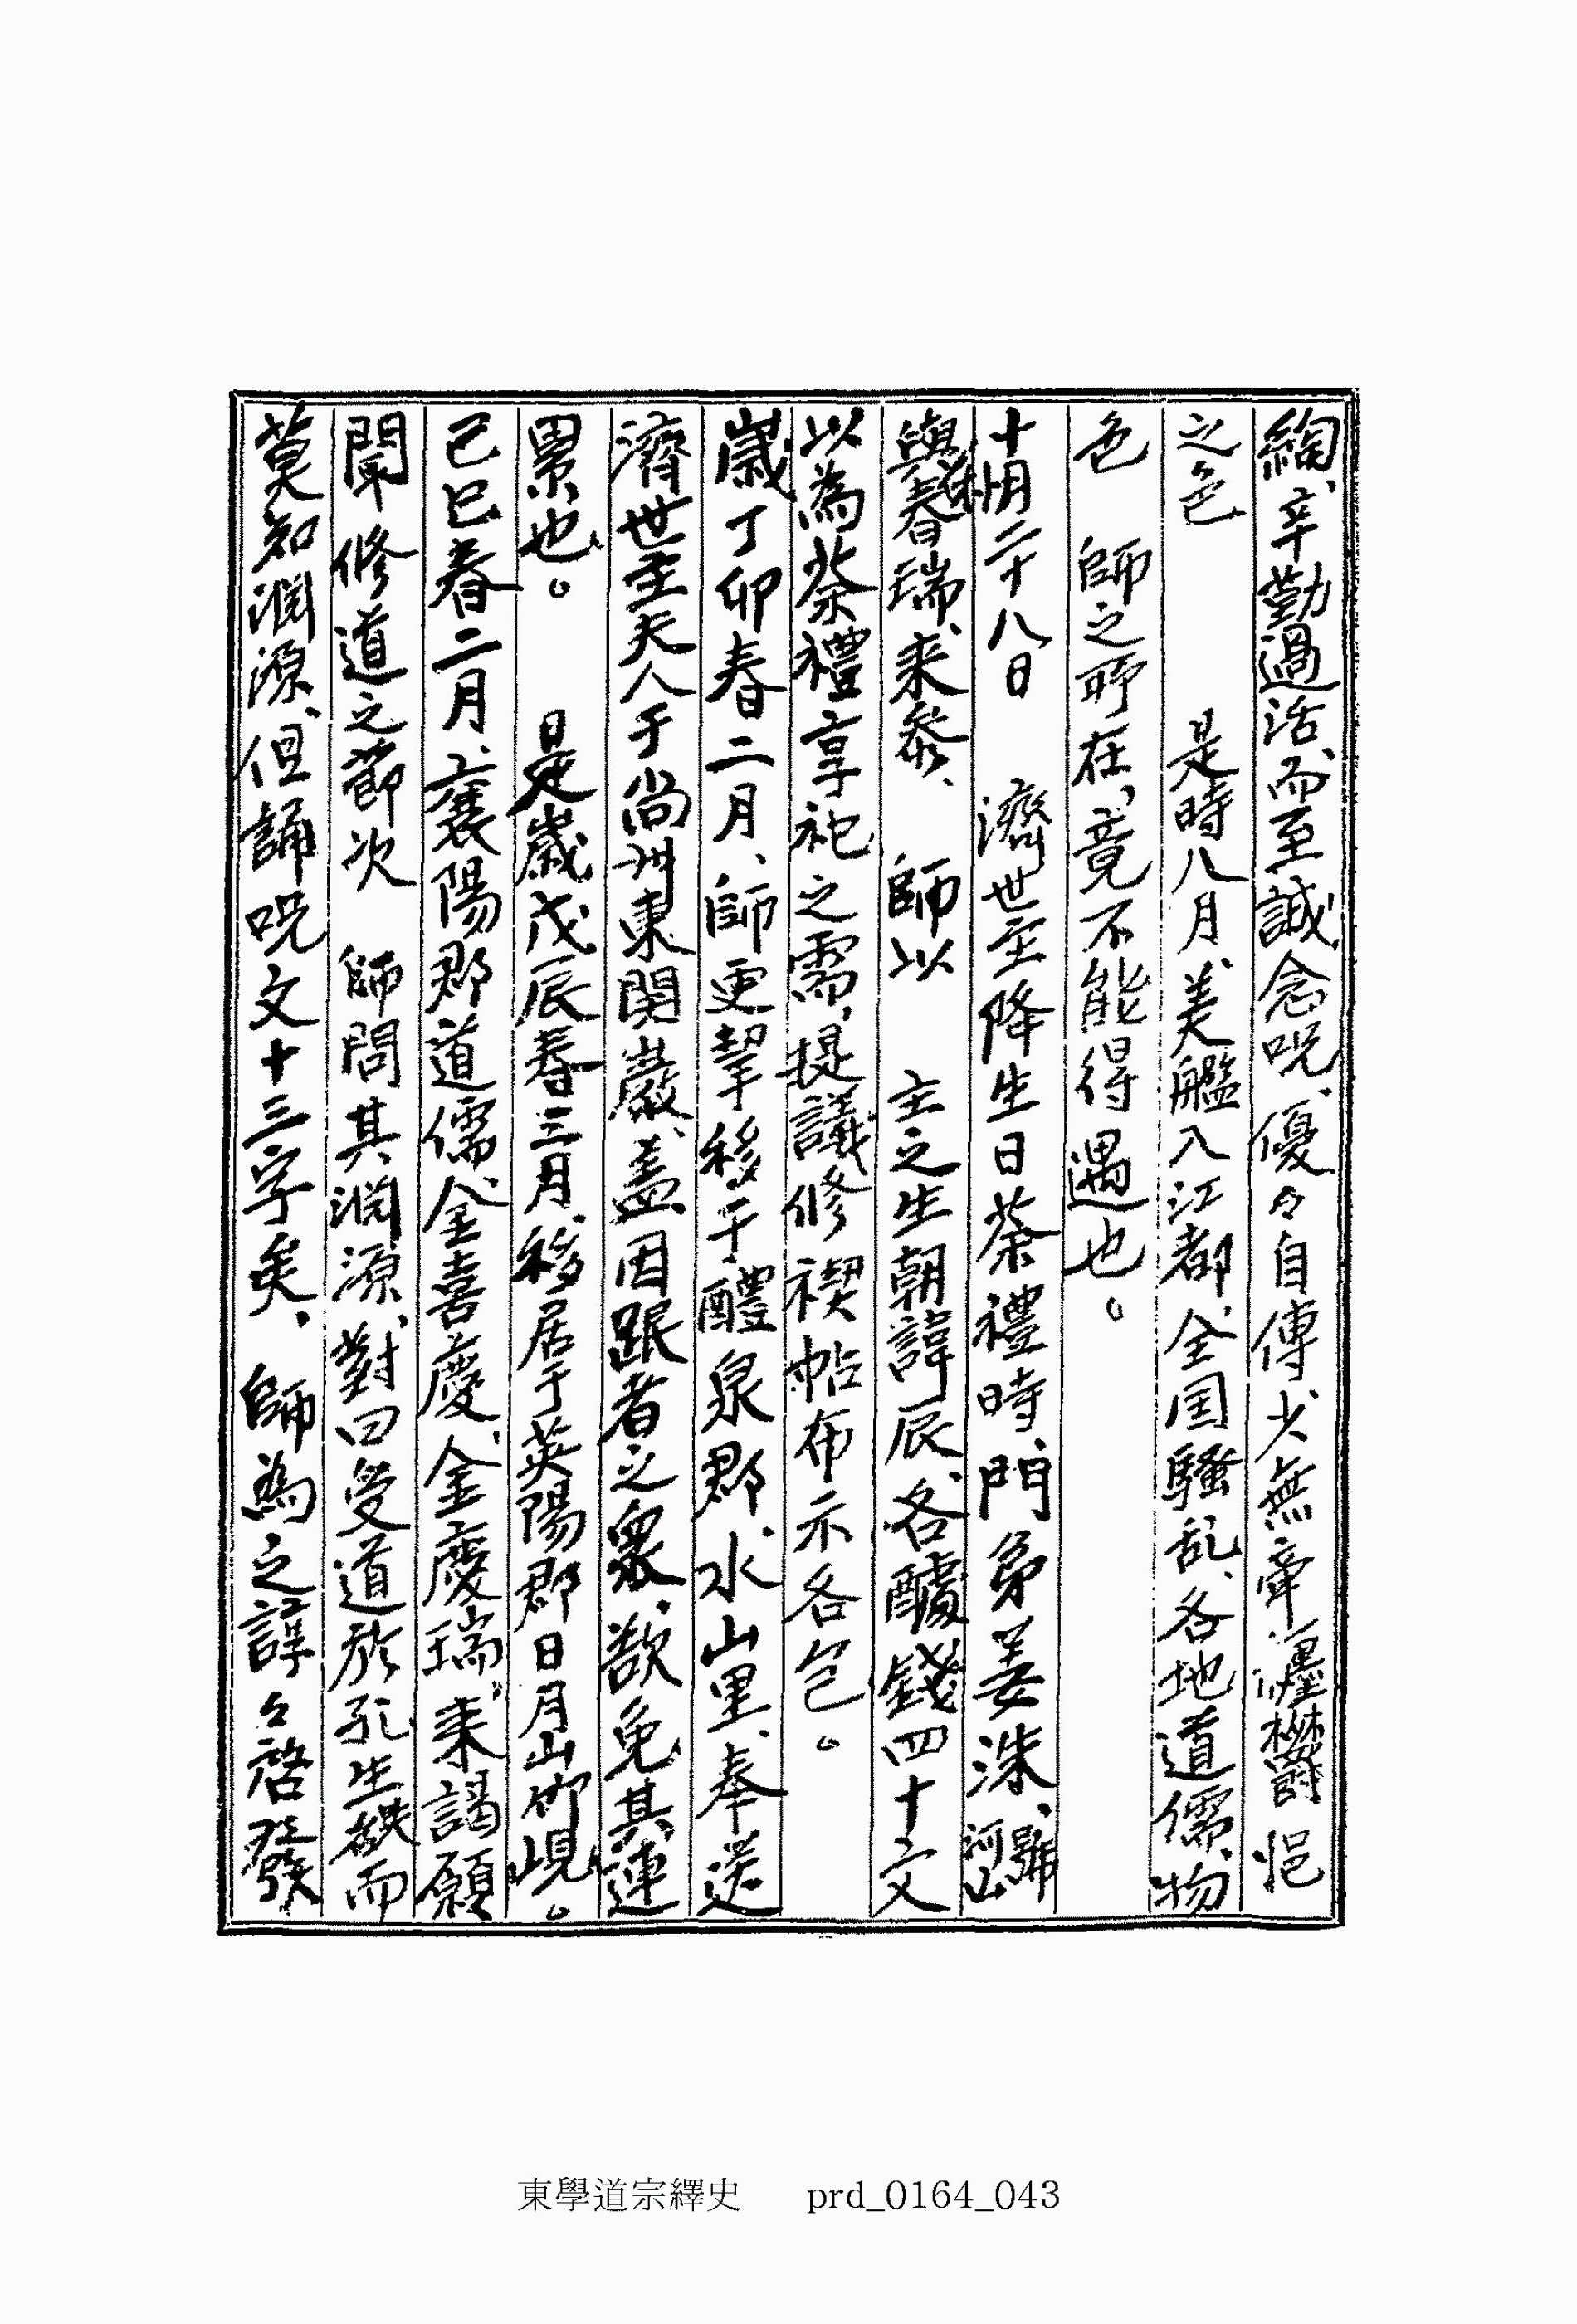 綯、辛勤過活、而至誠念呪、優々自傳、少無牽纏欝悒
之色 是時八月、美艦入江都、全国騷乱、各地道儒、物
色 師之所在、竟不能得遇也。
十月二十八日 濟世主降生日茶禮時、門弟姜洙、號河山
與 春瑞、来參、 師以 主之生朝諱辰、各醵錢四十文
以為茶禮享祀之需、提議修禊帖布示各包。
歲丁卯春二月、師更挈移于醴泉郡、水山里、奉送
濟世主夫人于尚州東関巖、盖因跟者之衆、欲免其連
累也。 是歲戊辰春三月、移居于英陽郡日月山竹峴。
己巳春二月、襄陽郡道儒、金喜慶、金慶瑞、来謁願
聞 修道之節次 師問其渊源、對曰受道於孔生 而
莫知渊源、但誦呪文十三字矣、 師為之諄々啓發
東學道宗繹史 prd_0164_043